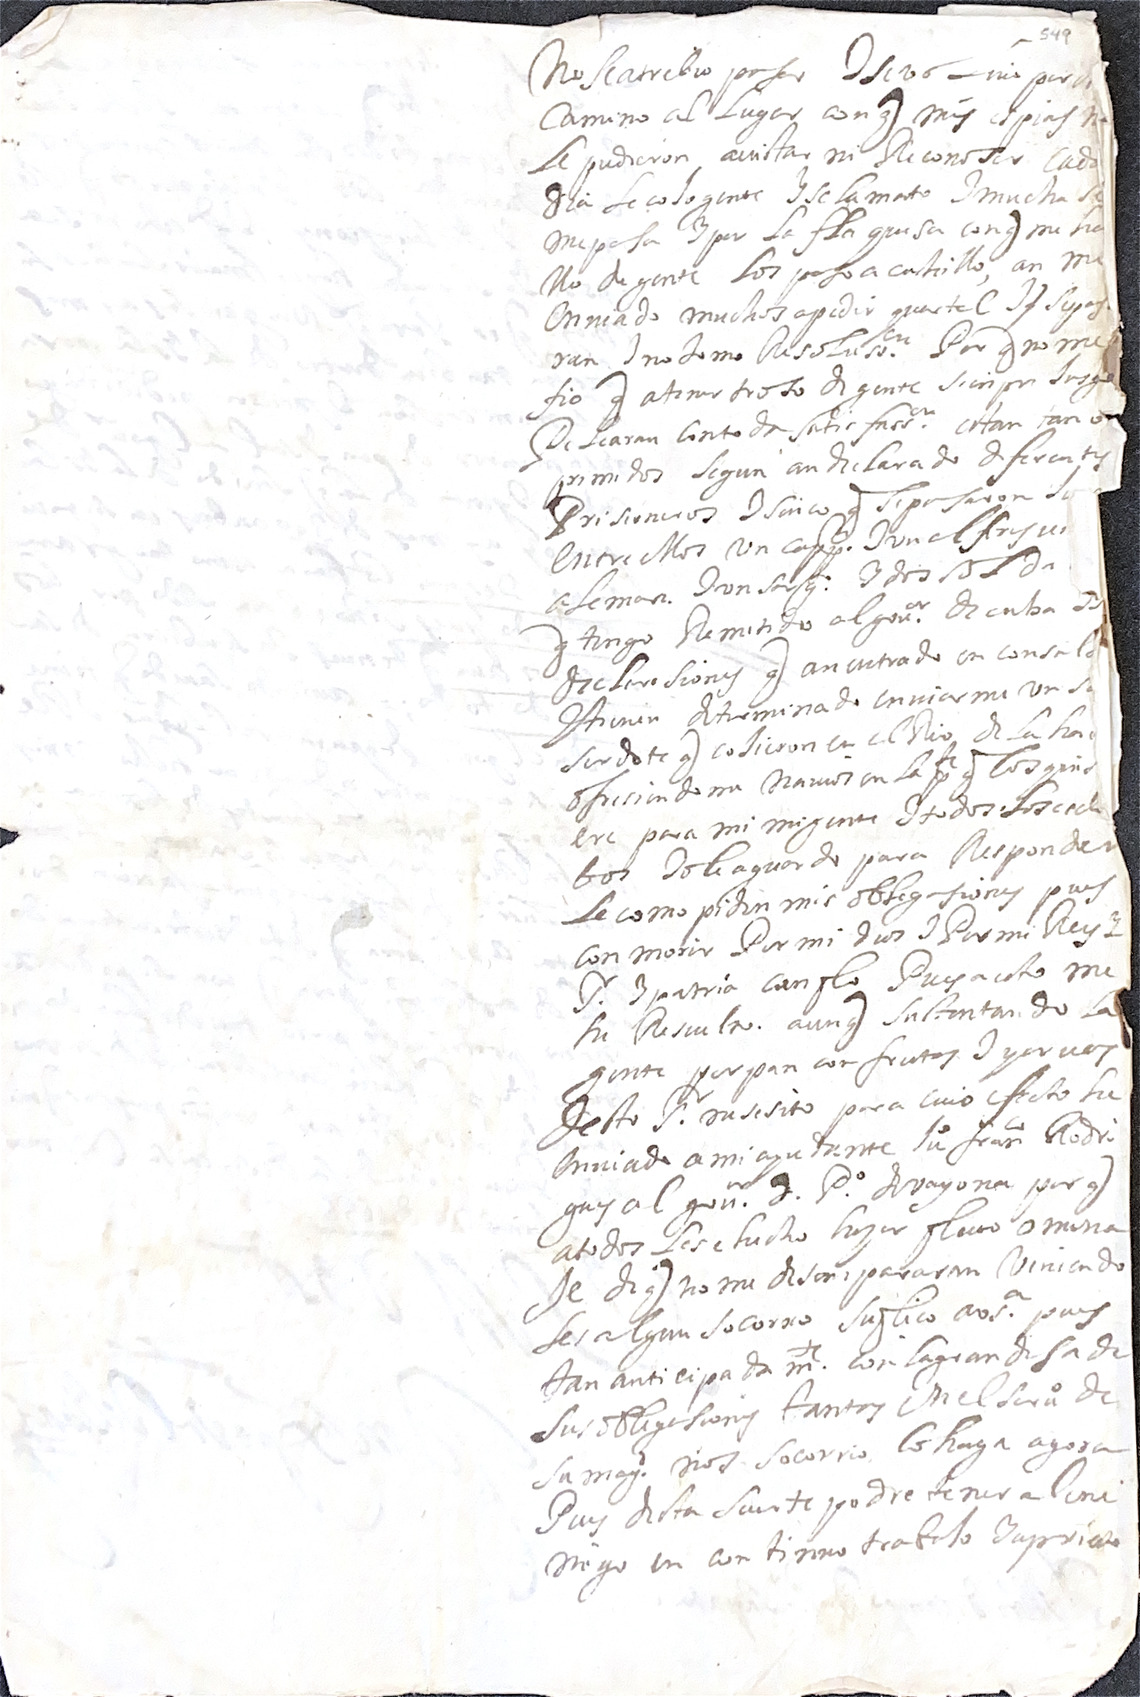 549
No Se atrebio pasar I se bolvio por el
Camino al Lugar con q mis espias no
Le pudieron avistar ni Reconoser Cada
dia Le cojo gente I se la mato I mucha se
me pasa I por La flaquesa con q me ha
llo de gente Los paso a cuchillo, an me
Enviado muchos a pedir quartel I q se pas
ran I no tomo Resolusⁿ. Por q no me
fio q a tener troso de gente siempre
Pelearan con toda satisfassⁿ. estan tan o
primidos Segun an declarado diferentes
Prisioneros I sinco q se pasaron
Entre ellos un capⁿ. I un alferes
aleman. I un sargᵗᵒ. I dos solda
q tengo Remitido al govᵒʳ. de cuba
declarasiones q an entrado en consulta
I tienen determinado enviarme un sa
serdote q cojieron en el Rio de la hac
ofresiendome navios en la pᵗᵉ q Los quisi
ere para mi mi gente I todos Los escla
bos Io le aguardo para Responder
Le como piden mis obligasiones pues
con morir Por mi dios I Por mi Rey I
Sʳ. I patria cumplo Pues a esto me
he Resuelto. aunq sustentando La
gente por pan con frutas I yervas
desto Sʳ. nesesito para cuio efecto he
Enviado a mi ayudante Juº franᶜᵒ Rodri
gues al govʳ. d. Pº. de bayona por q
a todos Les e hecho
de q no me desempararan Viniendo
Les algun socorro suplico a vosᵃ. pues
tan anticipadamᵗᵉ. con la grandesa de
sus obligasiones tantas En el servº de
su magᵈ. nos socorrio Lo haga agora
Pues desta suerte podre tener al ene
migo en continuo trabajo I aprieto